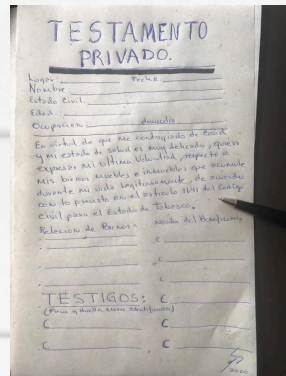 TESTAMENTO
PRIVADO.
Lugar: Fecha:
Nombre
Estado Civil.
Edad.
Ocupacion. domicilio
En virtud de que me contagiado de Covid
y mi estado de salud es muy delicado, quiero
expresar mi ultima Voluntad, respecto de
Mis bienes muebles e inmuebles que acumule
durante mi vida legitimamente, de acuerdo
con lo previsto en el articulo del Codigo
Civil para el Estado de Tabasco.
Relacion de Bienes: Nombre del Beneficiario
C
C
C
TESTIGOS: C
(Firma y Huella Identificacion)
C C
C C
2020